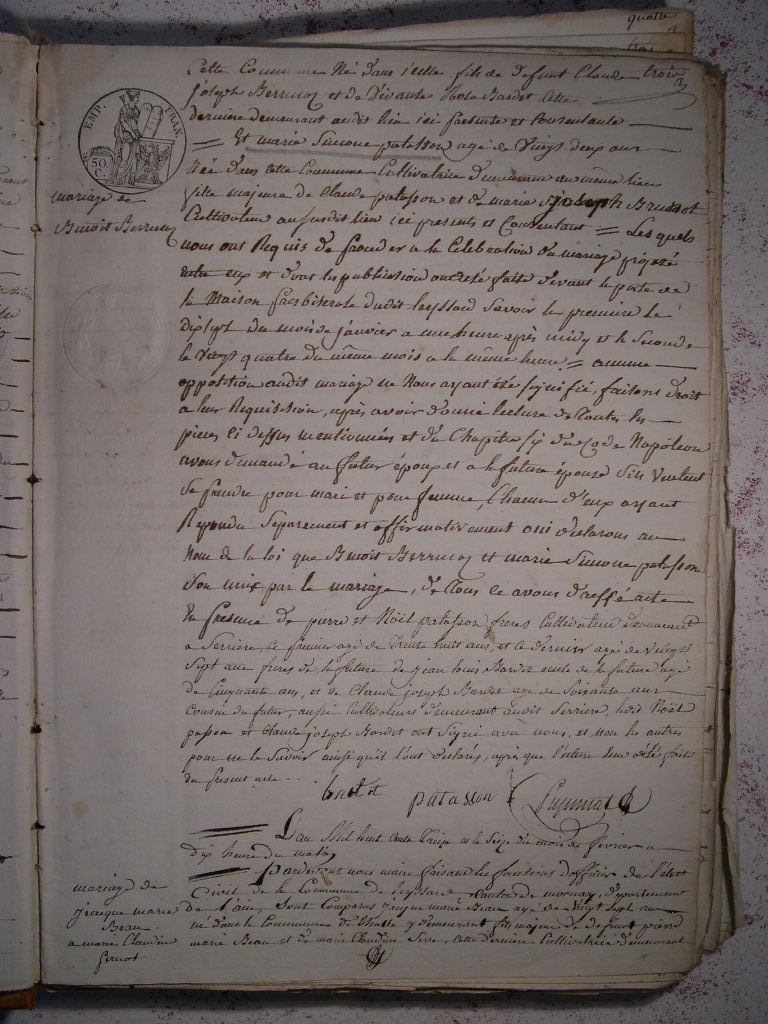 quatre
EMP. FRAN.
50 C.
mariage de
Benoit Berrucaz
Cette Commune Né dans icelle fils de defunt Claude trois
joseph Berrucaz et de vivante Rose Bardet Cette
derniere demeurant audit lieu ici presente et Consentante
Et marie Simone patasson age de Vingt deux ans
Née dans cette Commune Cultivatrice demeurante au même lieu
fille majeure de Claude patasson et de marie joseph Brunot
Cultivateur au susdit lieu ici presents et Consentant = Les quels
nous ont Requis de proceder a la Celebration du mariage projeté
entre eux et dont les publication ont été faite devant la porte de
la Maison presbiterale dudit Leyssard Savoir la premiere le
dix Sept du mois de janvier a une heure après midy et la Seconde
le Vingt quatre du même mois a la même heure = aucune
opposition audit mariage ne Nous ayant été signifié, faisons droit
a leur Requisition, après avoir donné lecture de Toutes les
pieces ci dessus mentionnées et du Chapitre six du Code Napoléon
avons demandé au futur époux et a la future épouse S'ils veulent
Se prendre pour mari et pour femme, Chacun d'eux ayant
Repondu Separement et affirmativement oui declarons au
Nom de la loi que Benoit Berrucaz et marie Simone patasson
Son unix par le mariage, de Tous ce avons dressé acte
En presence de pierre et Noël patasson freres Cultivateurs demeurant
a Serriere, le premier agé de Trente huit ans, et le dernier agé de vingt
Sept ans freres de la future de jean Louis Bardet oncle de la future agé
de Cinquante ans, et de Claude joseph Bardet age de Soixante ans
Cousin du futur, aussi Cultivateurs demeurant audit Serriere, ledit Noël
passon et Claude joseph Bardet ont Signé avec nous, et non les autres
pour ne le Savoir ainsi qu'il l'ont declarés, après que lecture leur a été fait
du present acte
bardet patasson
L'an Mil huit Cents Treize et le Seize du mois de fevrier a
dix heure du matin
Pardevant nous maire faisant les fonctions d'officier de l'etat
mariage de
jacque marie
Beau
a marie Claudine
Civil de la Commune de Leyssard Canton de mornay, departement
de l'ain, Sont Comparus jacque marie Beau agé de Vingt Sept ans
né dans la Commune de y demeurant fils majeur de defunt
marie Beau et de marie Claudine Cette derniere Cultivatrice demeurant